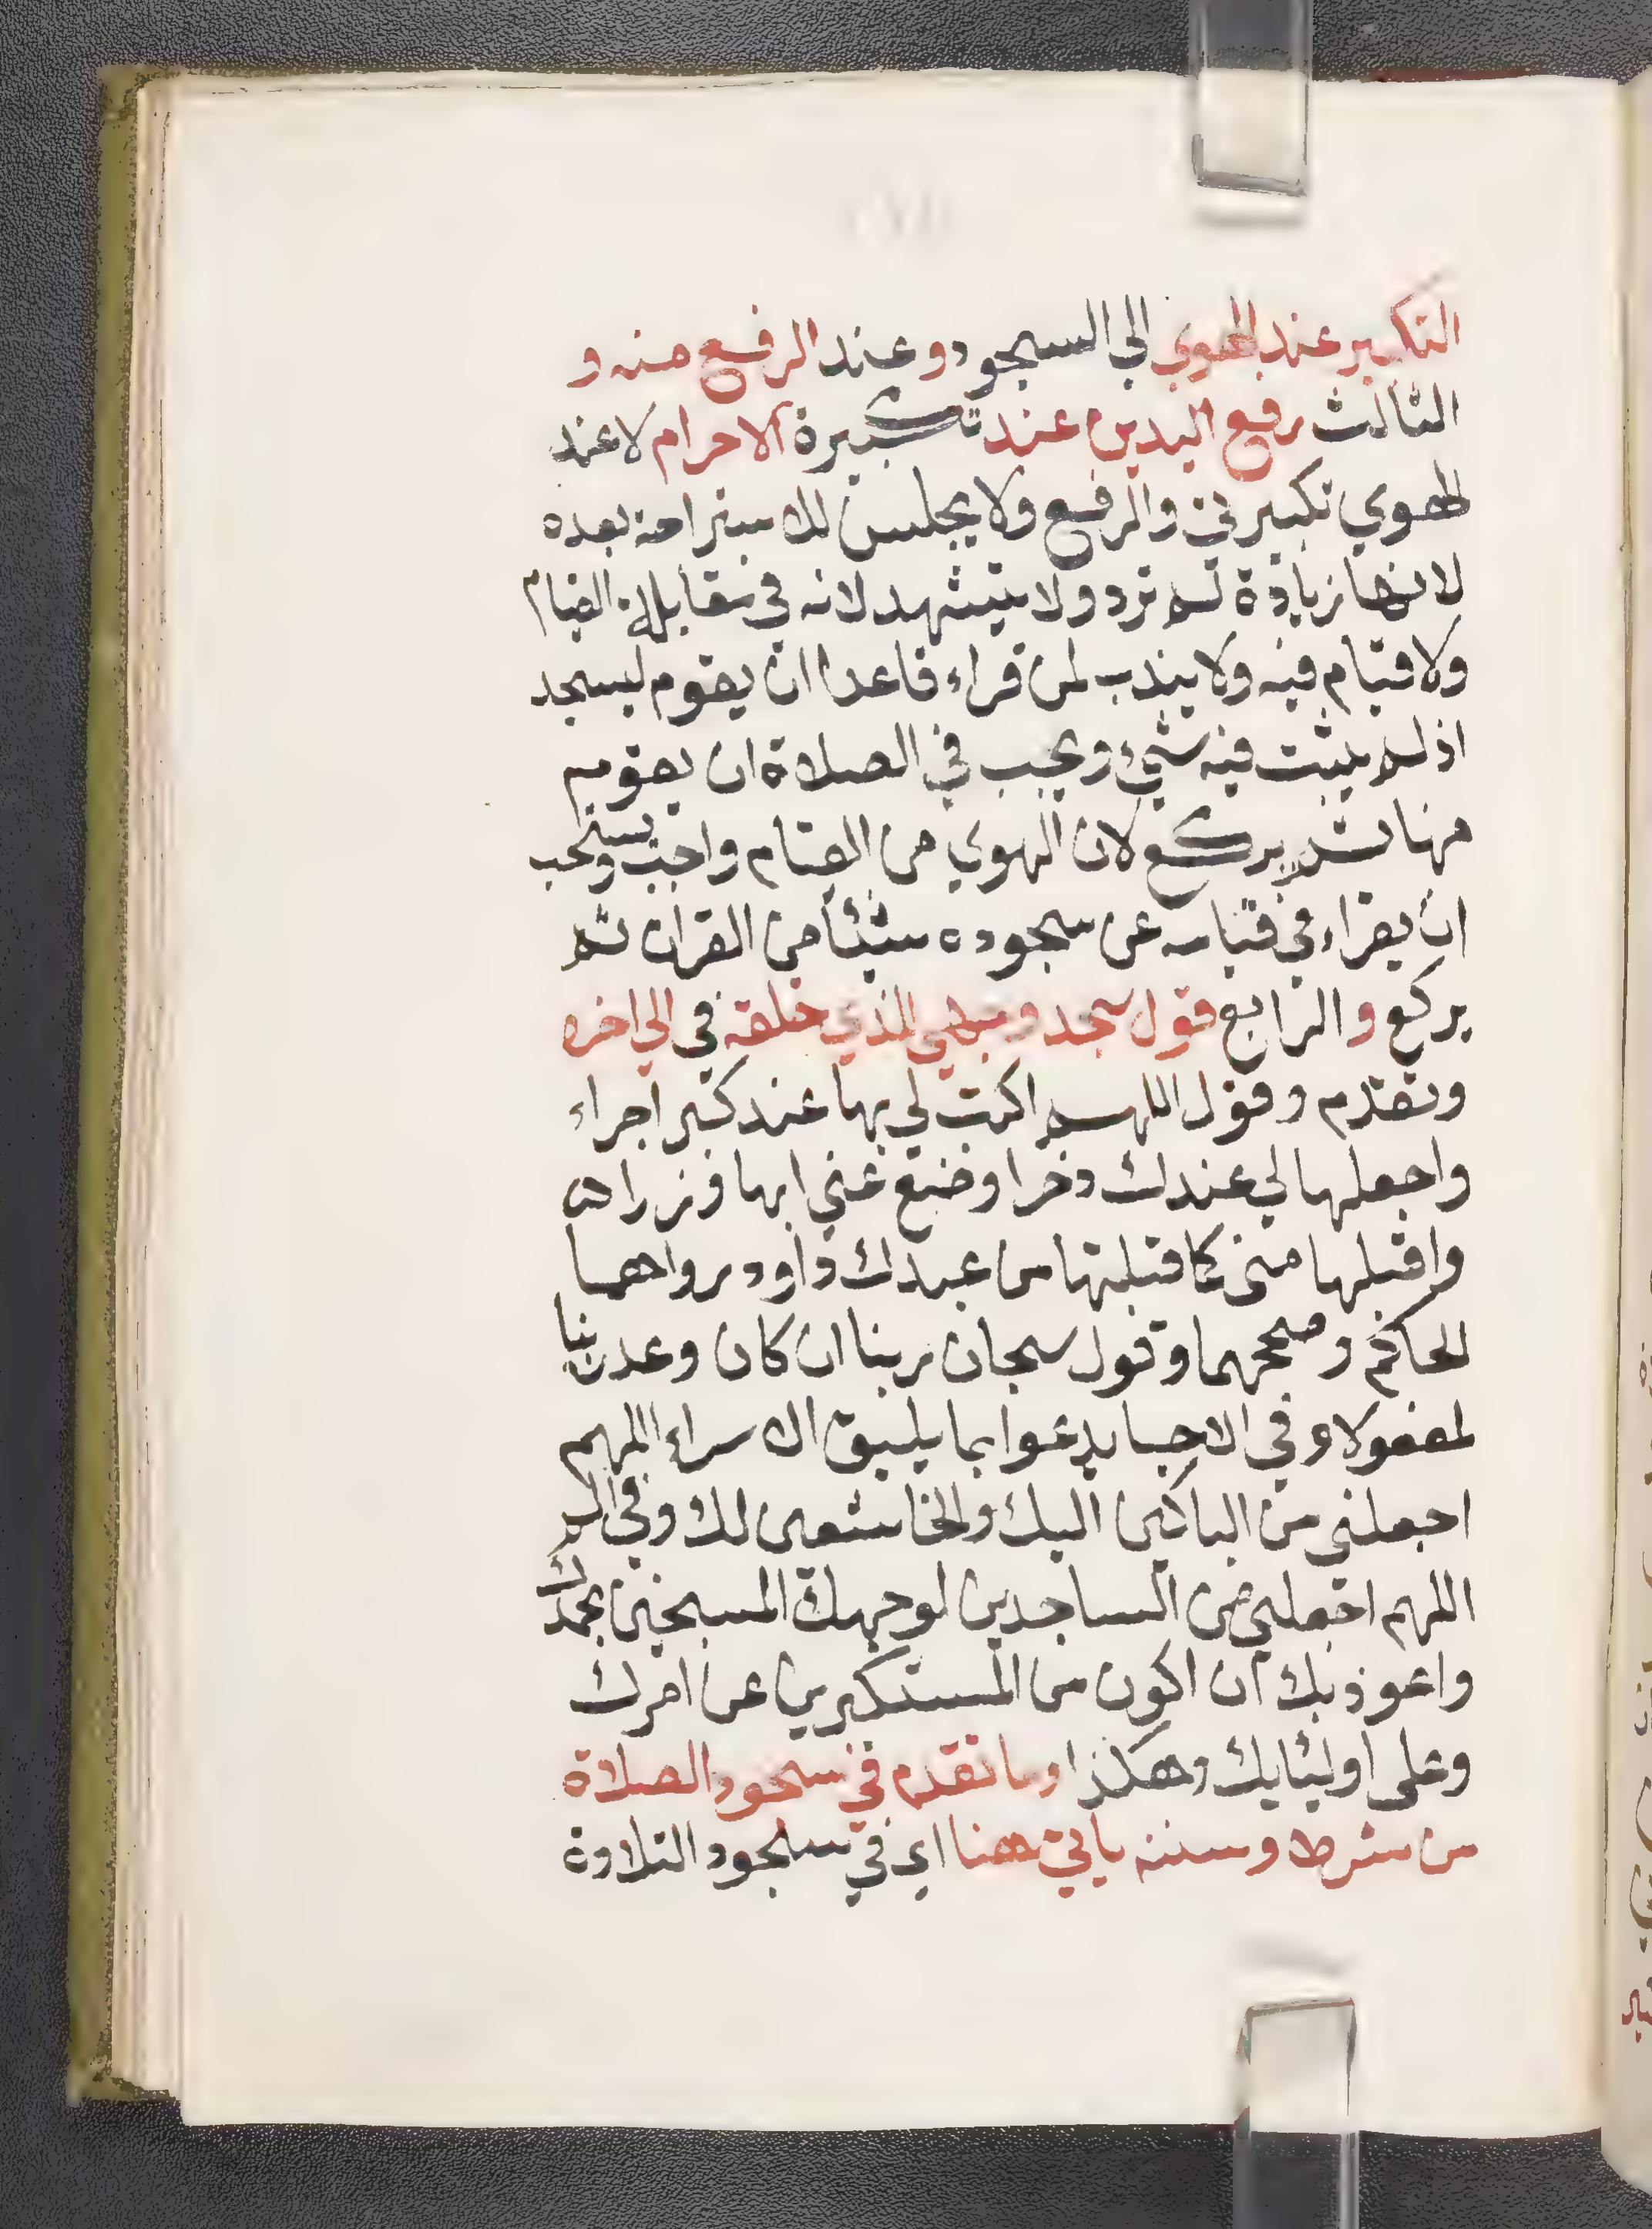 التكبير عند الهوي الي السجود و عند الرفع منه و
الثالث رفع اليدين عند تكبيرة الاحرام لا عند
الهوي تكبيرتي والرفع ولا يجلس للاستراحة بعده
لانها زيادة لم ترد ولا يتشهد لانه في مقابلة القيام
ولا قيام فيه ولا يندب لمن قراء قاعدا ان يقوم ليسجد
اذ لم يثبت فيه شيء ويجب في الصلاة ان يقوم
منها ثم يركع لان الهوي من القيام واجب ويستحب
ان يقراء في قيامه عن سجوده شيئا من القران ثم
يركع و الرابع قول سجد وجهي للذي خلقه في الي اخره
وتقدم و قول اللهم اكتب لي بها عندك اجراء
واجعلها لي عندك دخرا وضع عني بها وزرا
واقبلها مني كما قبلتها من عبدك داوود رواهما
الحاكم وصححهما وقول سبحان ربنا ان كان وعد ربنا
لمفعولا وفي الاحيا يدعوا بما يليق الاسراء اللهم
اجعلني من الباكين اليك والخاشعين لك وفي الم
اللهم اجعلني من الساجدين لوجهك المسبحين بحمدك
واعوذ بك ان اكون من المستكبرين عن امرك
وعلى اوليايك وهكذا وما تقدم في سجود الصلاة
من شرط وسننه ياتي هنا اي في سجود التلاوة